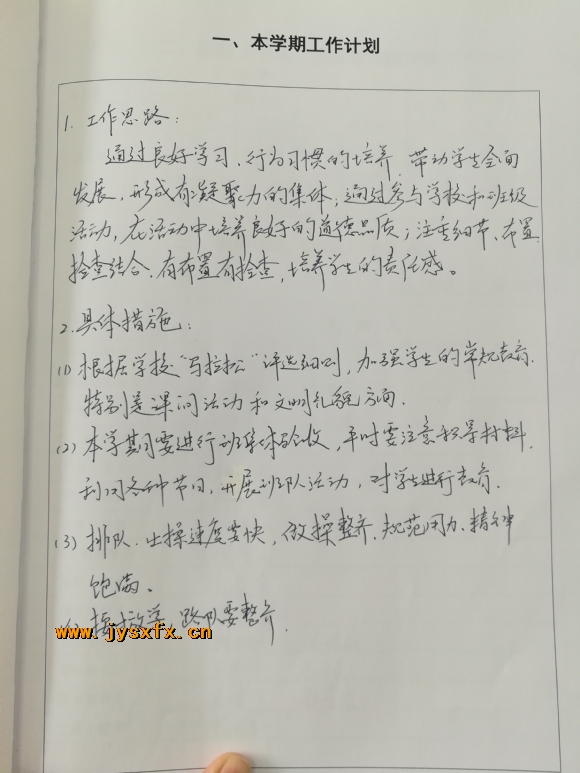 一、本学期工作计划
1. 工作思路：
通过良好学习、行为习惯的培养，带动学生全面
发展，形成有凝聚力的集体，通过参与学校和班级
活动，在活动中培养良好的道德品质；注重细节、布置
检查结合，有布置有检查，培养学生的责任感。
2. 具体措施：
(1) 根据学校“马拉松”评选细则，加强学生的常规教育，
特别是课间活动和文明礼貌方面.
(2) 本学期要进行班集体验收，平时要注意积累材料，
利用各种节日，开展班队活动，对学生进行教育.
(3) 排队、出操速度要快，做操整齐、规范用力、精神
饱满。
放学，路队要整齐.
www.jysxfx.cn